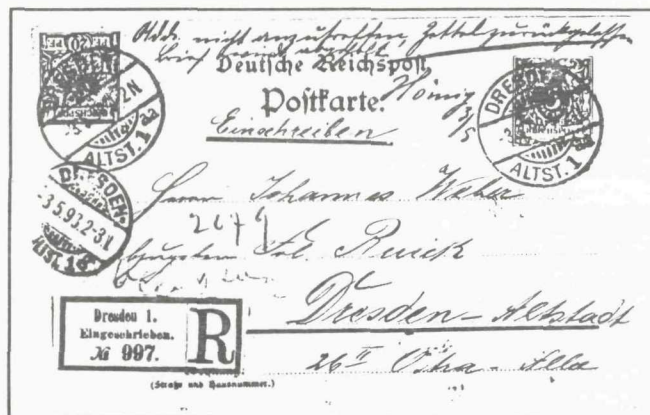 Adr. nicht anzutreffen, Zettel zurückgelassen
Brief wird abgeholt
Deutsche Reichspost
Postkarte.
Hönig
3/5
Einschreiben
DRESDEN
ALTST. 1 aa
DRESDEN
ALTST. 1 aa
DRESDEN-
3.5.93.2-3N
ALTST. 1
Herrn Johannes Weber
Frl.
Dresden-Altstadt
26 II Ostra-Alle
Dresden 1.
Eingeschrieben.
№ 997.
R
(Straße und Hausnummer.)